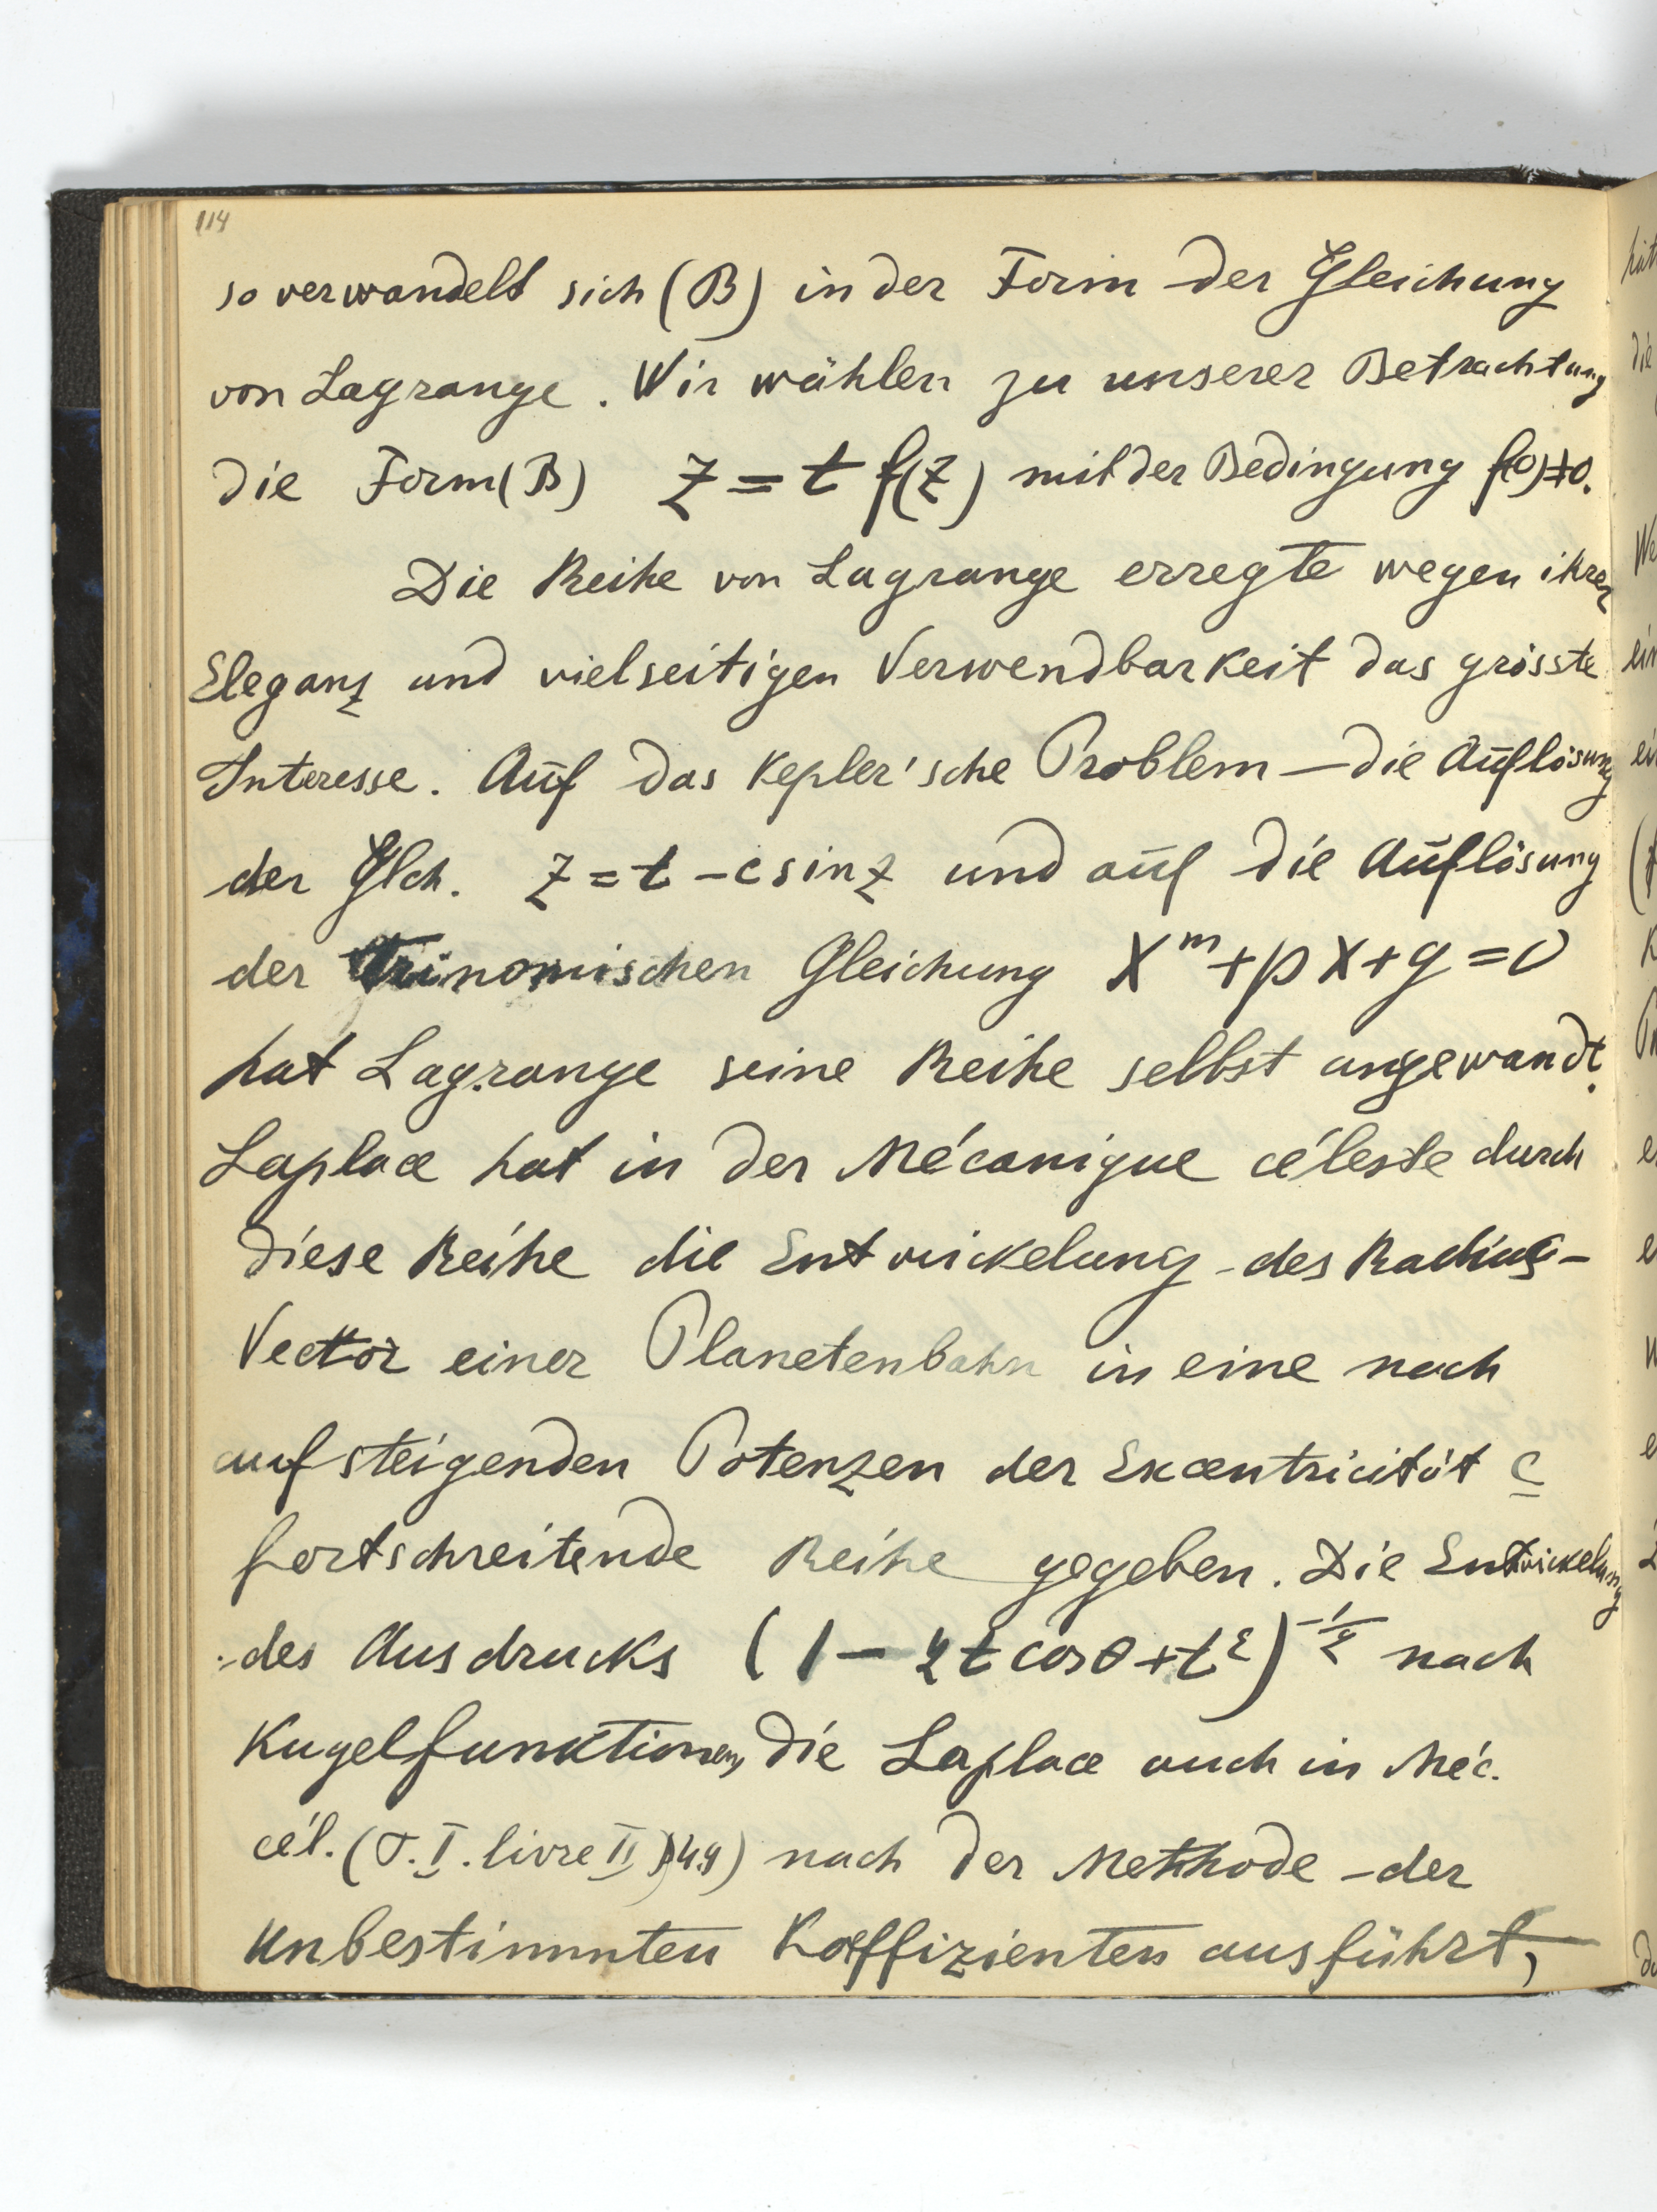 114
so verwandelt sich (B) in der Form der Gleichung
von Lagrange. Wir wählen zu unserer Betrachtung
die Form (B) z = t f(z) mit der Bedingung f(0)≠0.
Die Reihe von Lagrange erregte wegen ihrer
Eleganz und vielseitigen Verwendbarkeit das grösste
Interesse. Auf das Kepler'sche Problem — die Auflösung
der Glch. z = t - c sin z und auf die Auflösung
der trinomischen Gleichung x^m + px + q = 0
hat Lagrange seine Reihe selbst angewandt.
Laplace hat in der Mécanique céleste durch
diese Reihe die Entwickelung des Radius-
Vector einer Planetenbahn in eine nach
aufsteigenden Potenzen der Excentricität c
fortschreitende Reihe gegeben. Die Entwickelung
des Ausdrucks (1 - 2t cosθ + t²)^-1/2 nach
Kugelfunktionen, die Laplace auch in Méc.
cél. (T. I. livre II) 49) nach der Methode der
unbestimmten Koeffizienten ausführt,